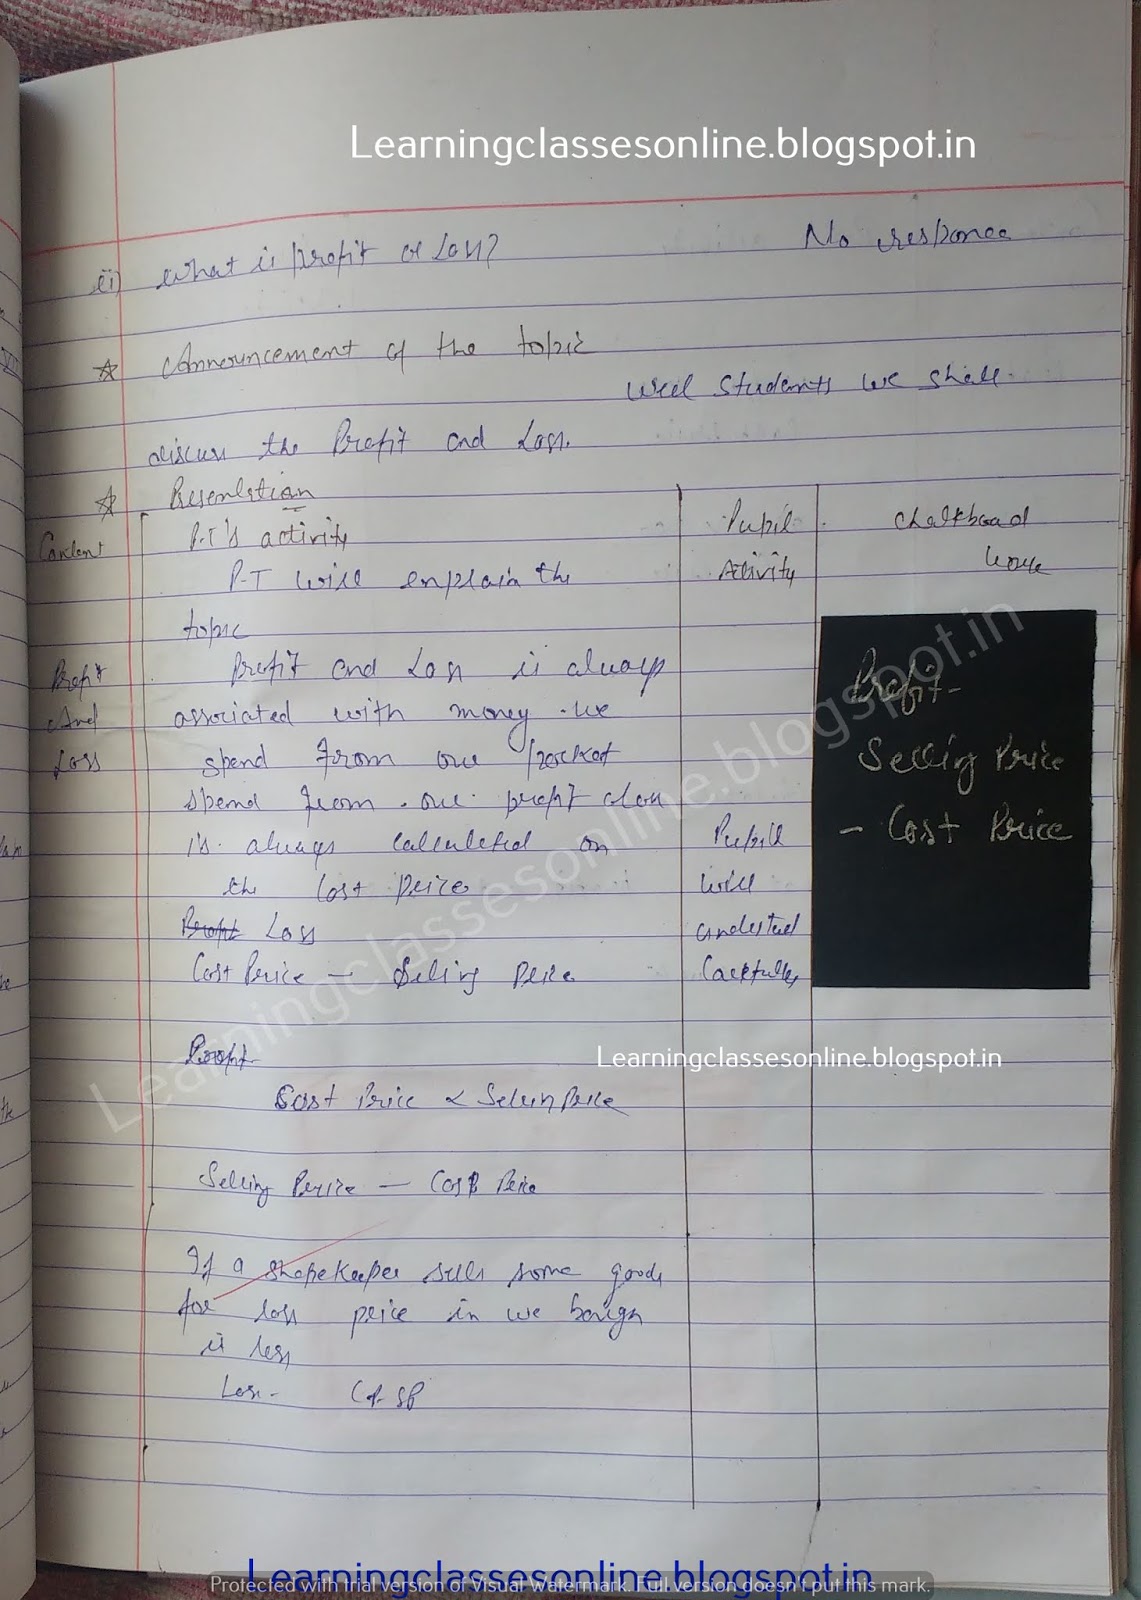 Learningclassesonline.blogspot.in
ii) What is profit or Loss? No response
☆ Announcement of the topic
Well students we shall
discuss the Profit and Loss.
☆ Presentation
Content P.T's activity Pupil Chalkboard
P.T will explain the Activity work
topic
Profit Profit and Loss is always Profit-
And associated with money. we
Loss spend from our pocket Selling Price
spend from our profit
is always calculated on Pupil - Cost Price
the Cost price will
Profit Loss
Cost Price - Selling Price
Profit
Learningclassesonline.blogspot.in
Cost Price < Price
Selling Price - Cost Price
If a shopekeeper sells some goods
for loss price in we
is less
Loss - CP-SP
Learningclassesonline.blogspot.in
Learningclassesonline.blogspot.in
Protected with trial version of Visual Watermark. Full version doesn't put this mark.